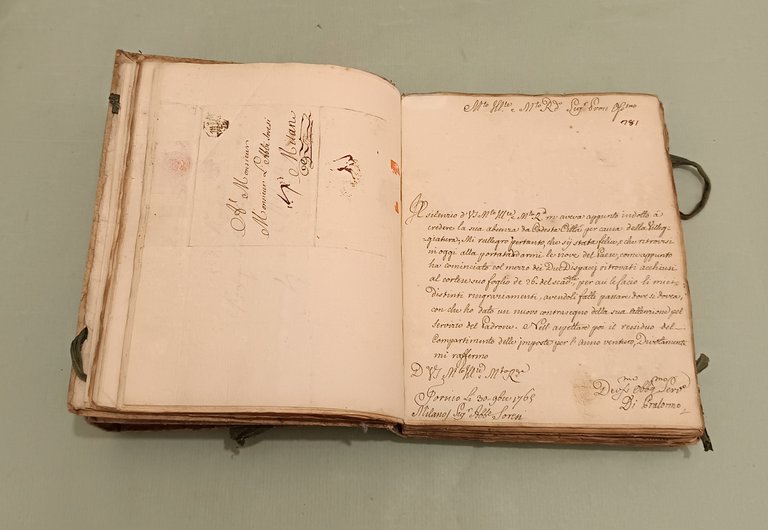 A Monsieur
Monsieur L'Abbé Soresi
Milan
M.to Ill.re e M.to R.do Sig.r Pron Oss.mo
781
Il silenzio d'VS M.to Ill.re e M.to R.da m'aveva appunto indotto à
credere la sua absenza da codesta Città per causa della Villeg-
giatura; Mi rallegro pertanto, che sij stata felice, e che ritrovisi
in oggi alla portata di darmi le nove del Paese, come appunto
ha cominciato col mezzo dei Due Dispacj ritrovati acchiusi
al cortese suo foglio de 26. del scad.te, per cui le facio li miei
distinti ringraziamenti, avendoli fatti passare dove si doveva,
con che ho dato un nuovo contrasegno della sua attenzione pel
servizio del Padrone. Nell'aspettare poi il residuo del
Compartimento delle imposte per l'anno venturo, Divotamente
mi raffermo
D VS M.to Ill.re e M.to R.da
Torino Li 30 9bre 1765
Milano Sig.r Abb.e Soresi
Dev.mo Obbg.mo Serv.re
Di Pralormo